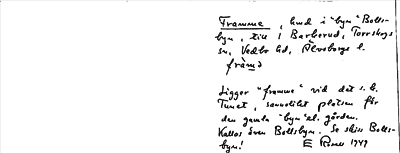 Framme, hmd i "byn" Bolls-
byn, till 1 Barborud, Torrskogs
sn, Vedbo hd, Älvsborgs l.
främ
Ligger "framme" vid det s.k.
Tunet, sannolikt platsen för
den gamla "byn" el. gården.
Kallas även Bollsbyn. Se skiss Bolls-
byn! 1949